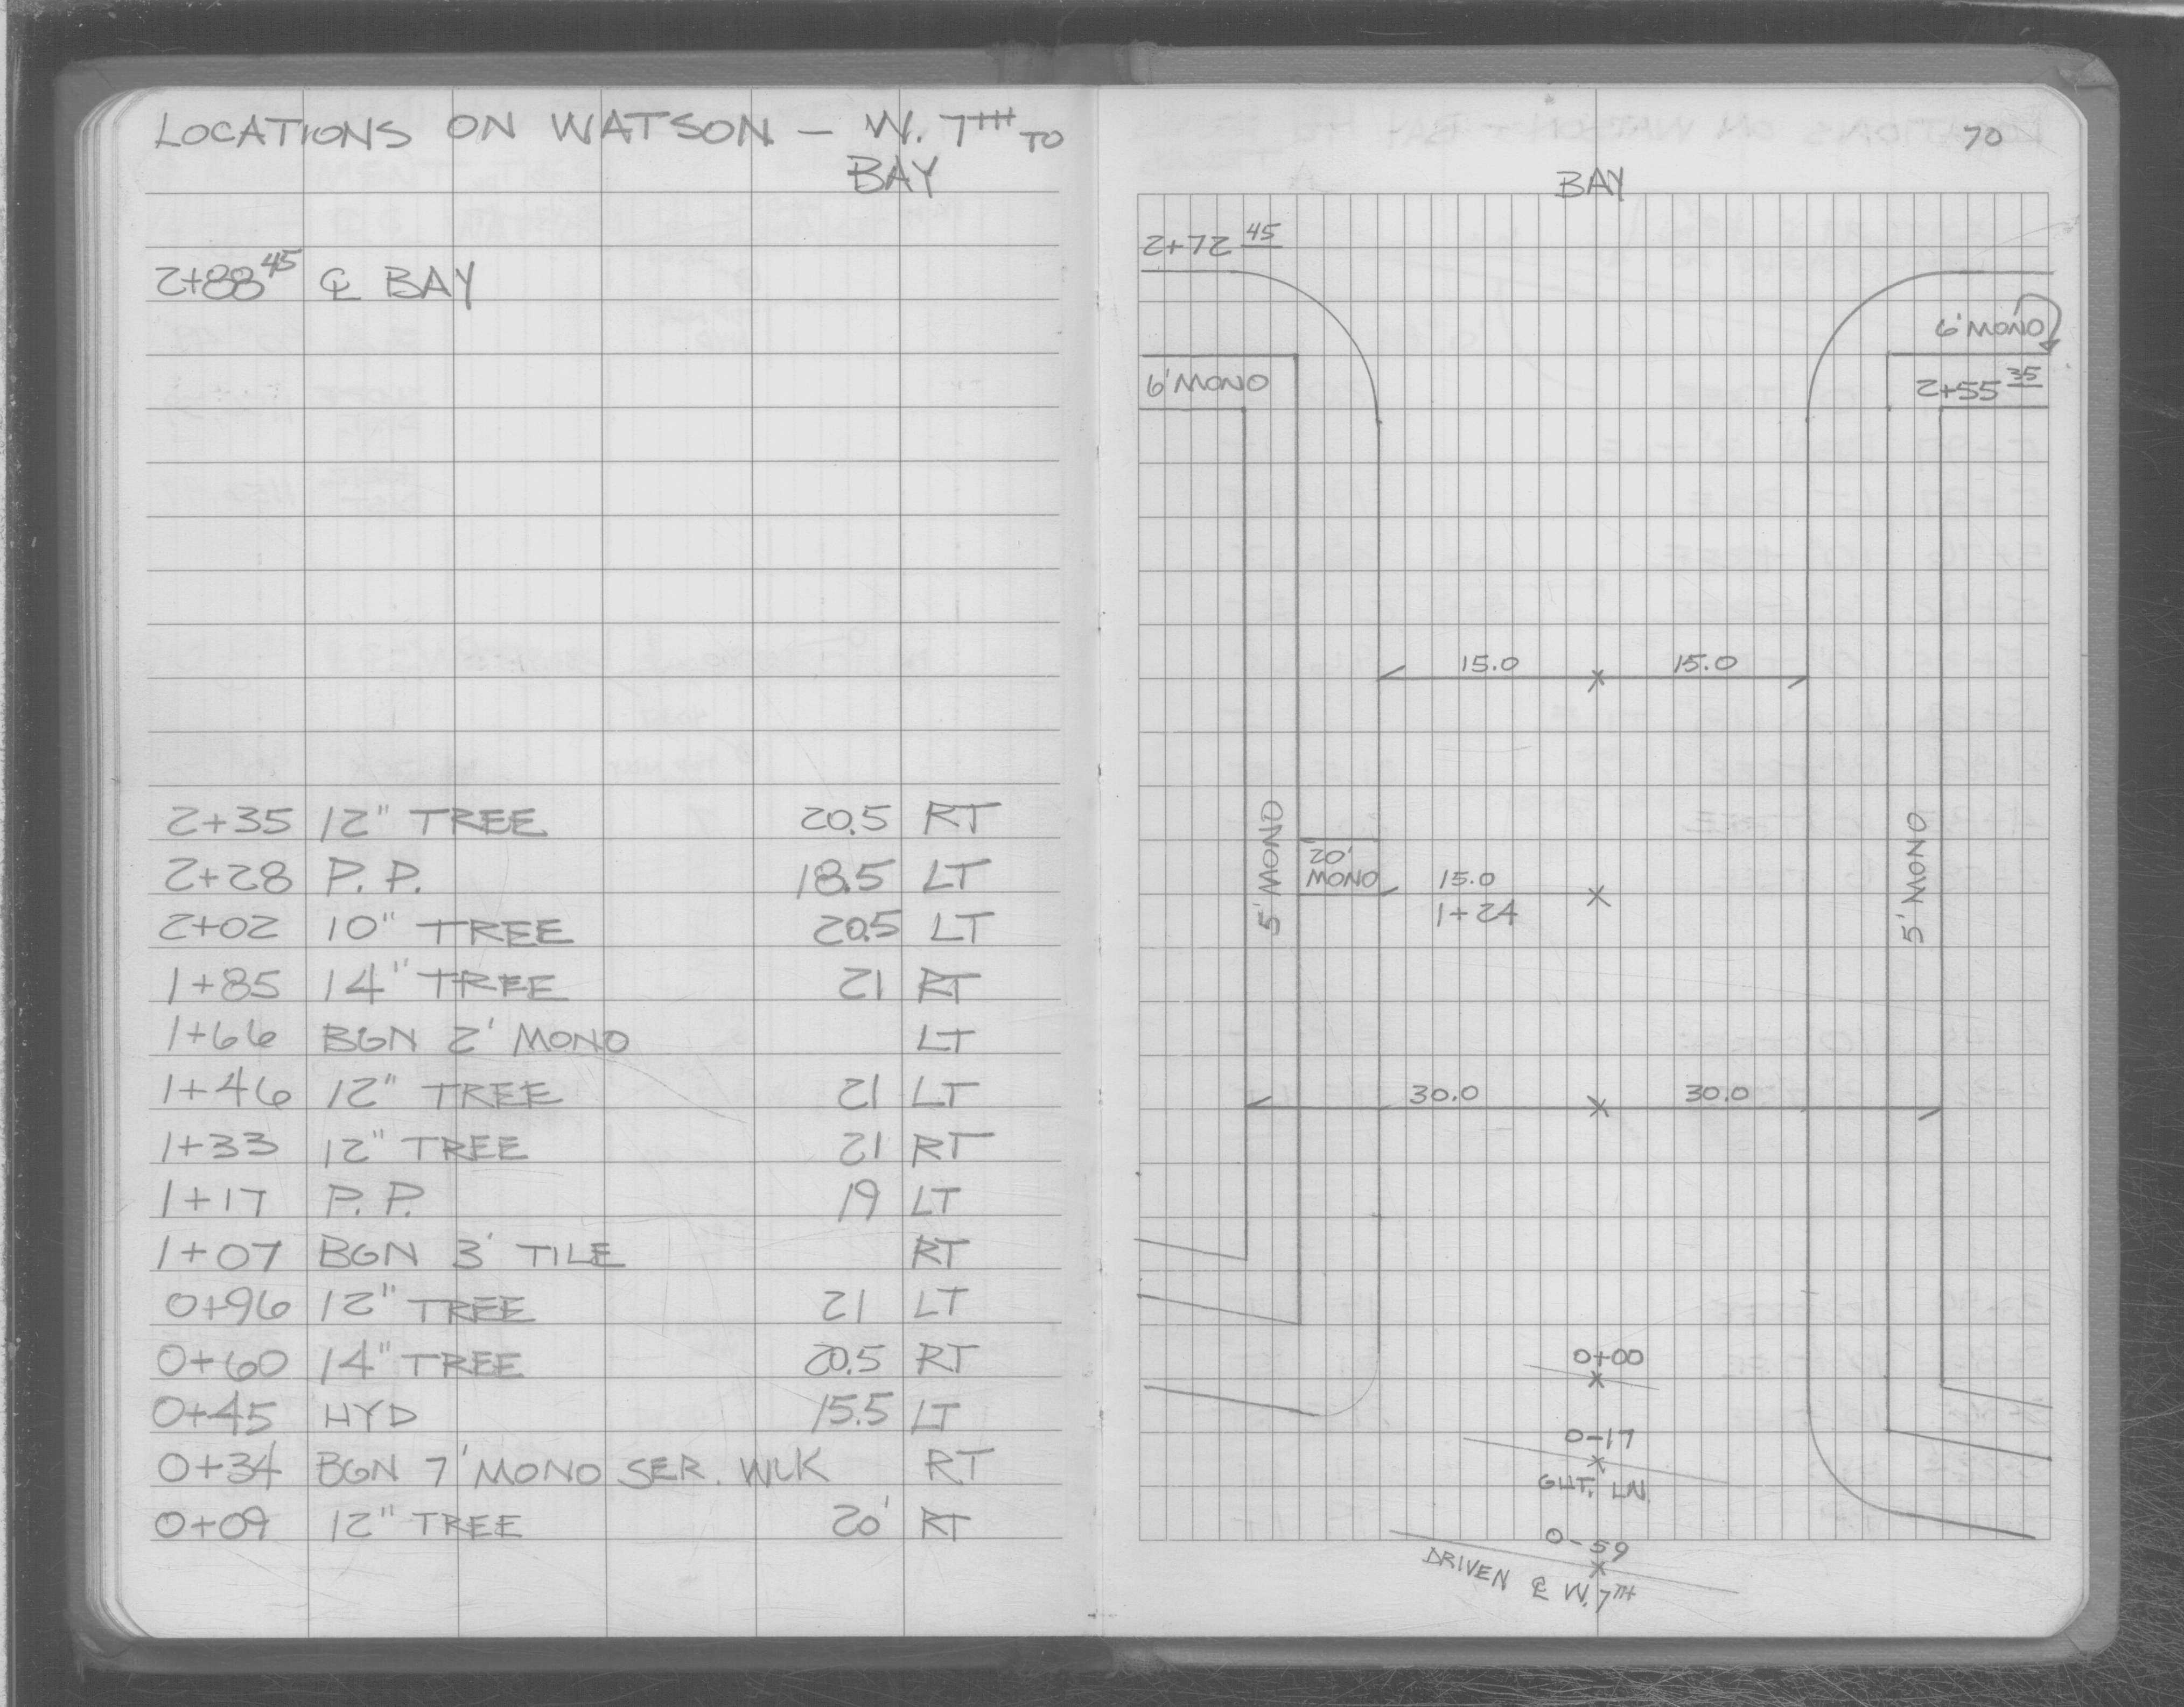 LOCATIONS ON WATSON - W. 7TH TO
BAY
2+88 45 ℄ BAY
2+35 12" TREE 20.5 RT
2+28 P.P. 18.5 LT
2+02 10" TREE 20.5 LT
1+85 14" TREE 21 RT
1+66 BGN 2' MONO LT
1+46 12" TREE 21 LT
1+33 12" TREE 21 RT
1+17 P.P. 19 LT
1+07 BGN 3' TILE RT
0+96 12" TREE 21 LT
0+60 14" TREE 20.5 RT
0+45 HYD 15.5 LT
0+34 BGN 7' MONO SER. WLK RT
0+09 12" TREE 20' RT
70
BAY
2+72 45
6' MONO
6' MONO
2+55 35
15.0 15.0
5' MONO
20'
MONO
15.0
1+24
5' MONO
30.0 30.0
0+00
0-17
GUT. LN.
0-59
DRIVEN ℄ W. 7TH